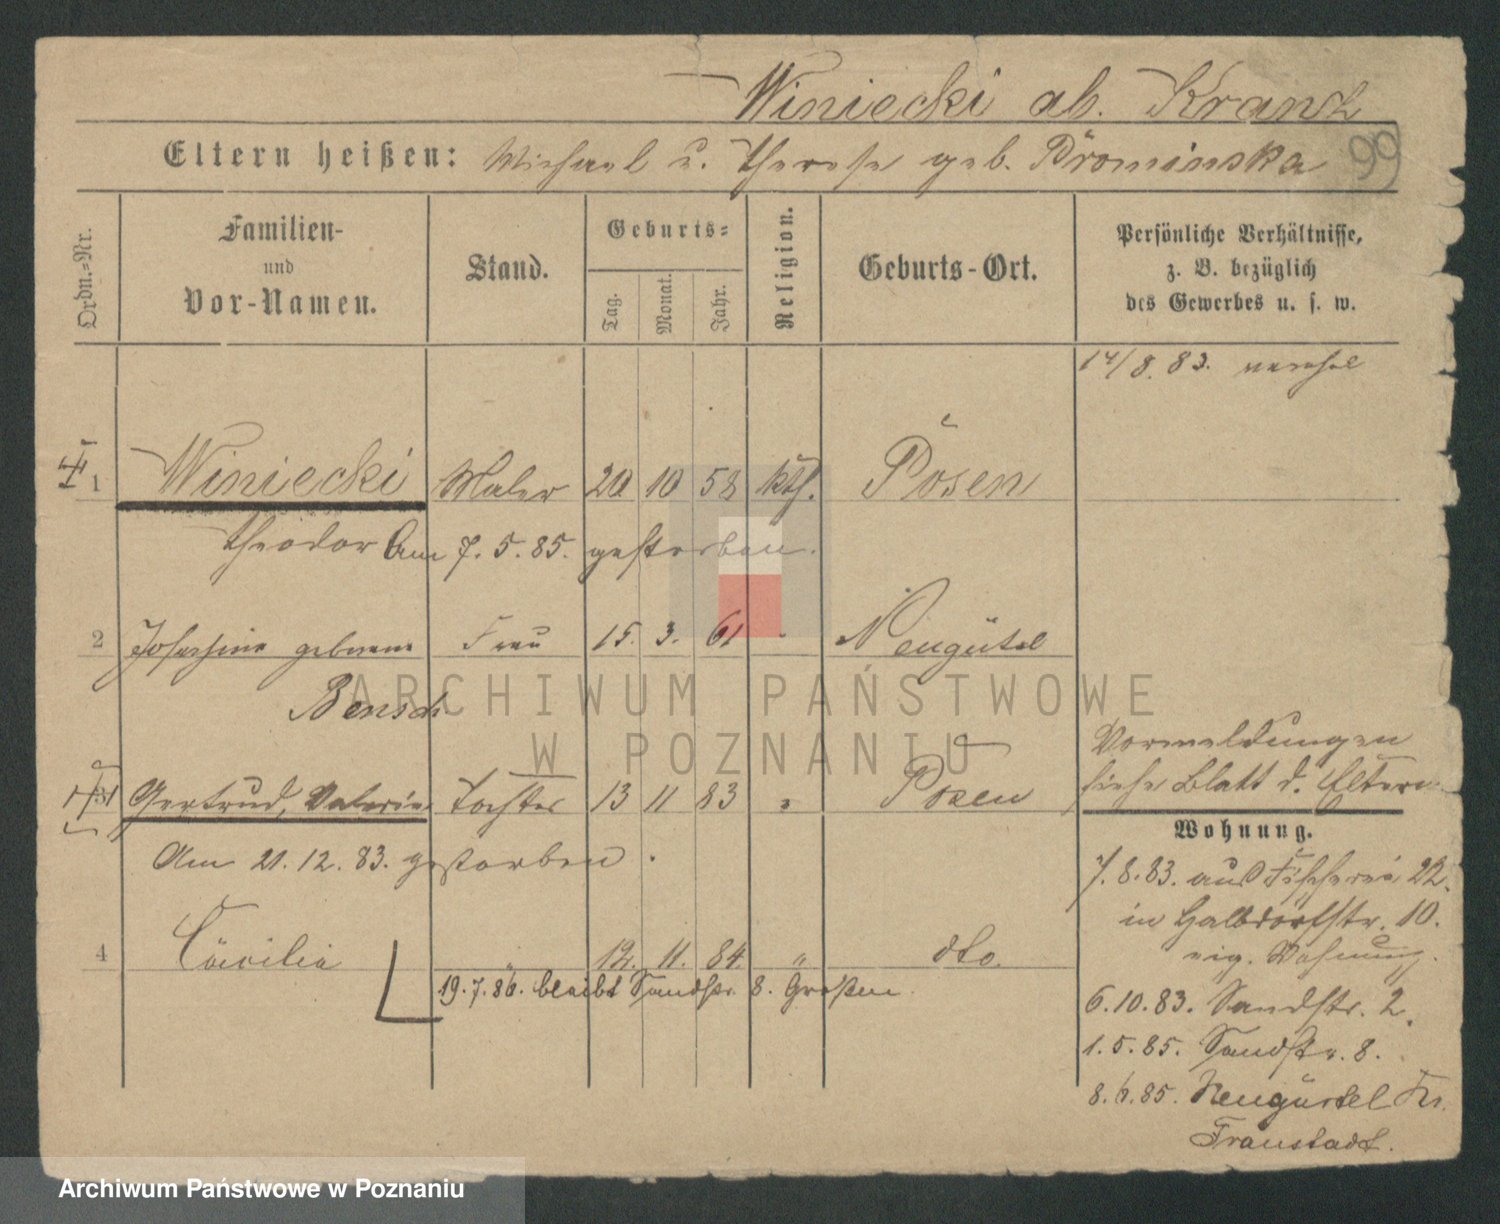 Winiecki ab. Krantz
Eltern heißen: Michael u. Therese geb. Brominska
99
Ordn.-Nr.
Familien- und Vor-Namen.
Stand.
Geburts-
Tag. Monat. Jahr.
Religion.
Geburts-Ort.
Persönliche Verhältnisse, z. B. bezüglich des Gewerbes u. s. w.
14/8. 83.
1 Winiecki Maler 20 10 58 kth. Posen
Theodor Am 7. 5. 85. gestorben.
2 Josephine geborene Frau 15. 3. 61 Neugütel
Bensch
3 Gertrud, Valerie Tochter 13 11 83 " Posen
Am 21. 12. 83. gestorben.
4 Cäcilia " 12. 11. 84. " dto.
19. 7. 86. bleibt Sandstr. 8. Großen
Vormeldungen
siehe Blatt d. Eltern
Wohnung.
7. 8. 83. aus Fischerei 22.
in Halbdorfstr. 10.
eig. Wohnung.
6. 10. 83. Sandstr. 2.
1. 5. 85. Sandstr. 8.
8. 6. 85. Neugürtel Kr.
Fraustadt.
ARCHIWUM PAŃSTWOWE
W POZNANIU
Archiwum Państwowe w Poznaniu